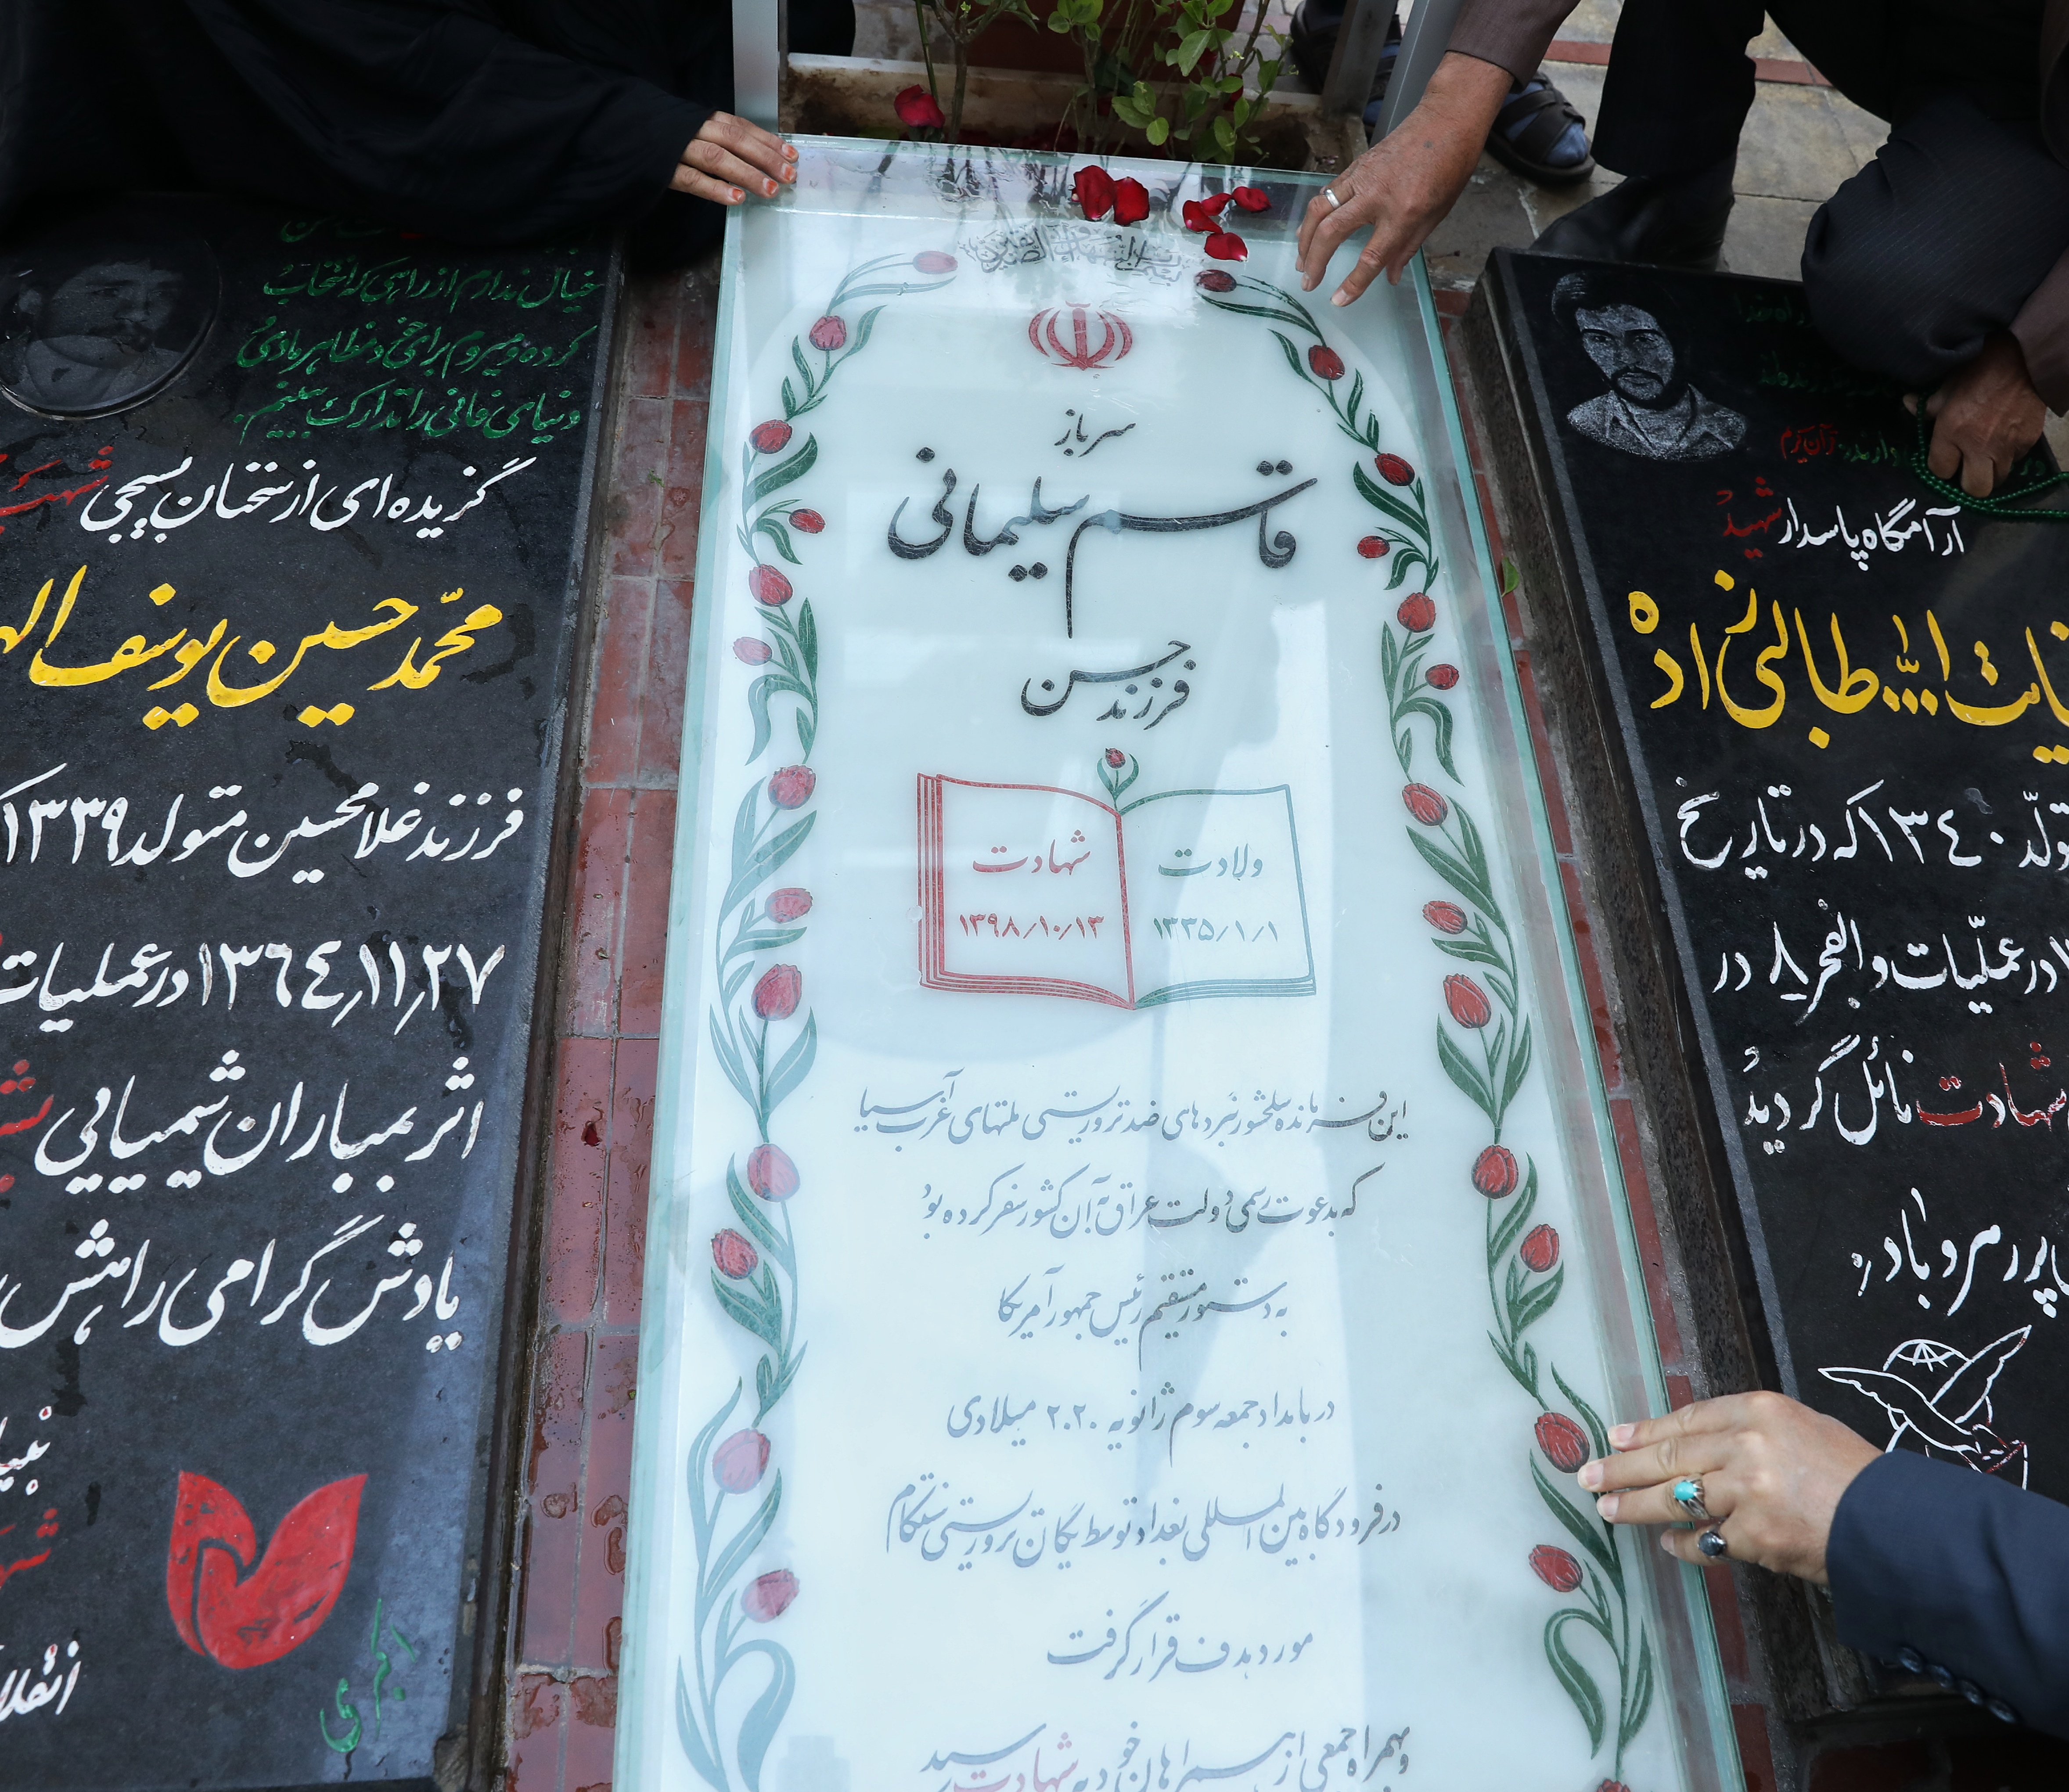 بسم رب الشهداء و الصدیقین
سرباز
قاسم سلیمانی
فرزند حسن
ولادت
۱۳۳۵/۱/۱
شهادت
۱۳۹۸/۱۰/۱۳
این فرمانده سلحشور نبردهای ضد تروریستی ملتهای غرب آسیا
که بدعوت رسمی دولت عراق به آن کشور سفر کرده بود
به دستور مستقیم رئیس جمهور آمریکا
در بامداد جمعه سوم ژانویه ۲۰۲۰ میلادی
در فرودگاه بین المللی بغداد توسط یگان تروریستی سنتکام
مورد هدف قرار گرفت
و بهمراه جمعی از همراهان خود به شهادت رسید
خیال ندارم از راهی که انتخاب
کرده و میروم برای خ و مظاهر مادی
دنیای فانی را تدارک ببینم.
گزیده ای از سخنان بسیجی شهید
محمّد حسین یوسف الهی
فرزند غلامحسین متولد ۱۳۳۹ که
۱۳۶۴٫۱۱٫۲۷ در عملیات
اثر بمباران شیمیایی
یادش گرامی راهش
انقلاب
اکبری
قرآن کریم
آرامگاه پاسدار شهید
عنایت اللّه طالبی زاده
متولّد ۱۳۴۰ که در تاریخ
در عملّیات والفجر ۸ در
شهادت نائل گردید
پر رهرو باد